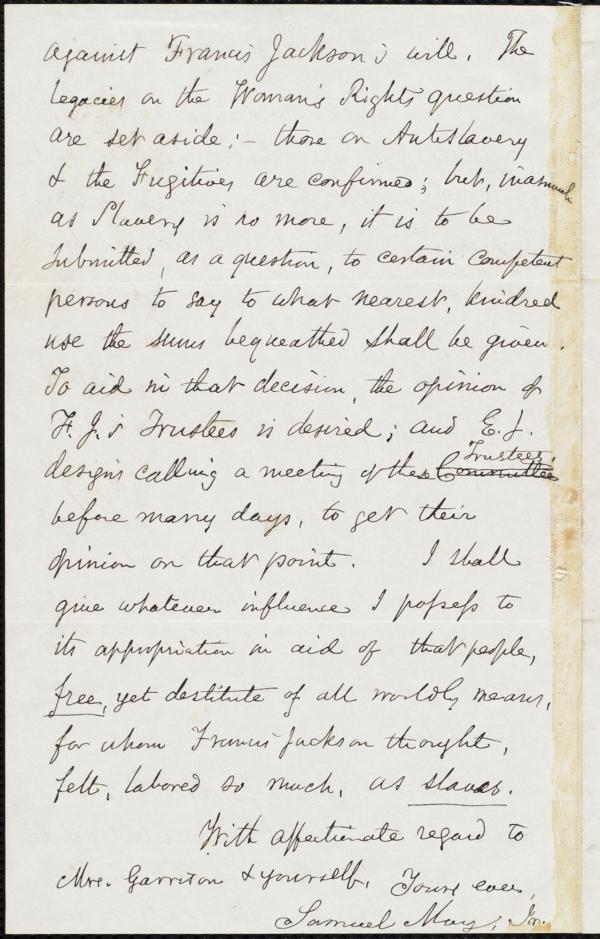 against Francis Jackson's will. The
legacies on the Woman's Rights question
are set aside; – those on Antislavery
& the Fugitives are confirmed; but, inasmuch
as Slavery is no more, it is to be
submitted, as a question, to certain competent
persons to say to what nearest, kindred
use the sums bequeathed shall be given.
To aid in that decision, the opinion of
F. J.'s Trustees is desired; and E. J.
Trustees,
designs calling a meeting of these Committee
before many days, to get their
opinion on that point. I shall
give whatever influence I possess to
its appropriation in aid of that people,
free, yet destitute of all worldly means,
for whom Francis Jackson thought,
felt, labored so much, as slaves.
With affectionate regard to
Mrs. Garrison & yourself, Yours ever,
Samuel May, Jr.